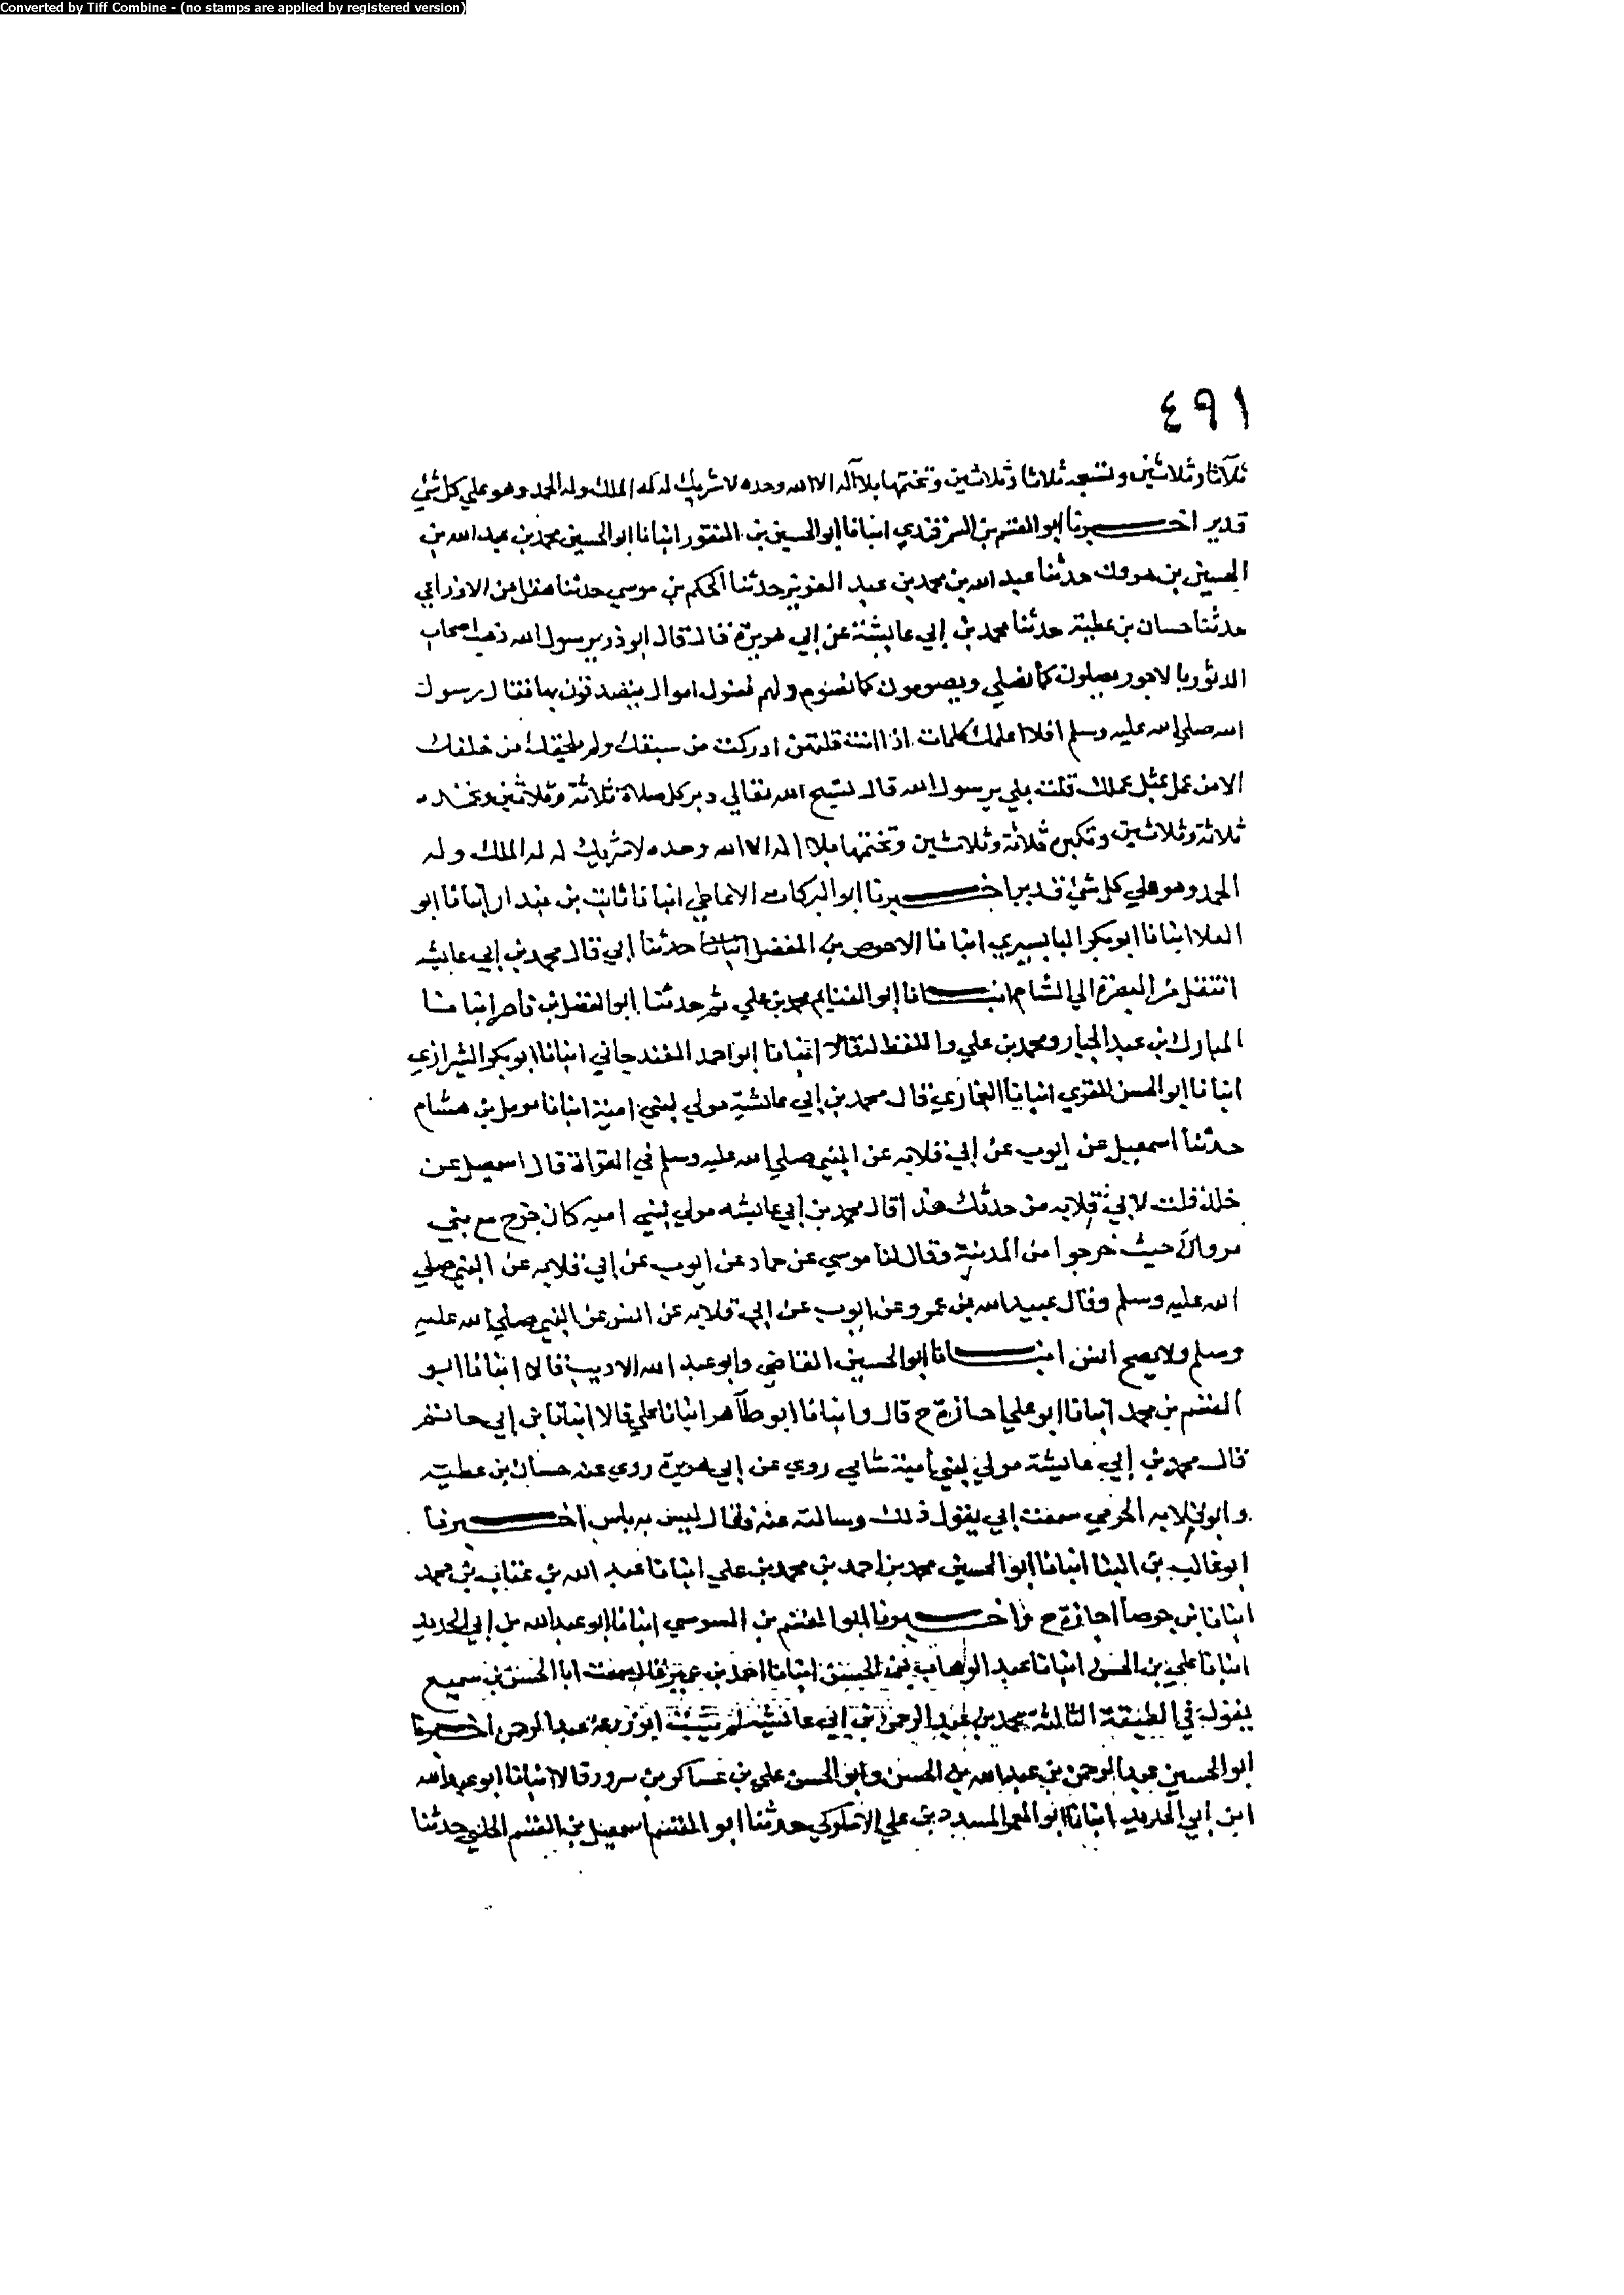 Converted by Tiff Combine - (no stamps are applied by registered version)
٤٩١
ثلاثا وثلاثين وتسبحه ثلاثا وثلاثين وتختمها بلا اله الا الله وحده لا شريك له له الملك وله الحمد وهو علي كل شي
قدير اخبرنا ابو القسم بن السمرقندي انبانا ابو الحسين بن النقور انبانا ابو الحسين محمد بن عبد الله بن
الحسين بن هروك حدثنا عبد الله بن محمد بن عبد العزيز حدثنا الحكم بن موسي حدثنا هقل عن الاوزاعي
حدثنا حسان بن عطية حدثنا محمد بن ابي عايشة عن ابي هريرة قال قال ابو ذر يرسول الله ذهب اصحاب
الدثور بالاجور يصلون كما نصلي ويصومون كما نصوم ولهم فضول اموال يتصدقون بها فقال رسول
الله صلي الله عليه وسلم افلا اعلمك كلمات اذا انت قلتهن ادركت من سبقك ولم يلحقك من خلفك
الا من عمل بمثل عملك قلت بلي يرسول الله قال تسبح الله تعالي دبر كل صلاة ثلاثة وثلاثين وتحمده
ثلاثة وثلاثين وتكبره ثلاثة وثلاثين وتختمها بلا اله الا الله وحده لا شريك له له الملك وله
الحمد وهو علي كل شي قدير اخبرنا ابو البركات الانماطي انبانا ثابت بن بندار انبانا ابو
العلا انبانا ابو بكر البابسيري انبانا الاحوص بن المفضل حدثنا ابي قال محمد بن ابي عايشه
انتقل من البصرة الي الشام انبانا ابو الغنايم محمد بن علي ثم حدثنا ابو الفضل بن ناصر انبانا
المبارك بن عبد الجبار ومحمد بن علي واللفظ له قالا انبانا ابو احمد الغندجاني انبانا ابو بكر الشيرازي
انبانا ابو الحسن المقري انبانا البخاري قال محمد بن ابي عايشة مولي لبني امية انبانا مومل بن هشام
حدثنا اسمعيل عن ايوب عن ابي قلابه عن النبي صلي الله عليه وسلم في القراة قال اسمعيل عن
خلد قلت لابي قلابه من حدثك هذا قال محمد بن ابي عايشه مولي لبني اميه كان خرج مع بني
مروان حيث خرجوا من المدينة وقال لنا موسي عن حماد عن ايوب عن ابي قلابه عن النبي صلي
الله عليه وسلم وقال عبيد الله بن عمرو عن ايوب عن ابي قلابه عن انس عن النبي صلي الله عليه
وسلم ولا يصح انس انبانا ابو الحسين القاضي وابو عبد الله الاديب قالا انبانا ابو
القسم بن محمد انبانا ابو علي اجازة ح قال وانبانا ابو طاهر انبانا علي قالا انبانا بن ابي حاتم
قال محمد بن ابي عايشة مولي لبني امية شامي روي عن ابي هريرة روي عنه حسان بن عطيه
وابو قلابه الجرمي سمعت ابي يقول ذلك وسالته عنه فقال ليس به باس اخبرنا
ابو غالب بن البنا انبانا ابو الحسين محمد بن احمد بن محمد بن علي انبانا عبد الله بن عتاب بن محمد
انبانا بن جوصا اجازة ح واخبرنا ابو القسم بن السوسي انبانا ابو عبد الله بن ابي الحديد
انبانا علي بن الحسن انبانا عبد الوهاب بن الحسن انبانا احمد بن عمير قال سمعت ابا الحسن بن سميع
يقول في الطبقة الثالثة محمد بن عبد الرحمن بن ابي عايشه لم يثبت ابو زرعة عبد الرحمن اخبرنا
ابو الحسين عبد الرحمن بن عبد الله بن الحسن وابو الحسن علي بن عساكر بن سرور قالا انبانا ابو عبد الله
ابن ابي الحديد انبانا ابو المعمر المسدد بن علي الاملوكي حدثنا ابو القسم اسمعيل بن القسم الحلبي حدثنا